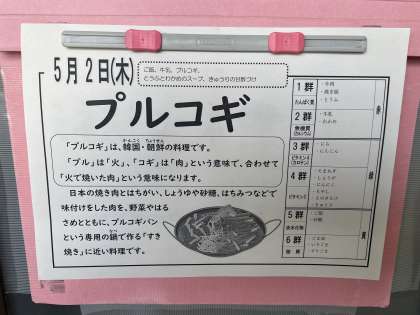 5月2日(木)
ご飯、牛乳、プルコギ、
とうふとわかめのスープ、きゅうりの甘酢づけ
プルコギ
「プルコギ」は、韓国・朝鮮の料理です。
かんこく ちょうせん
「プル」は「火」、「コギ」は「肉」という意味で、合わせて
「火で焼いた肉」という意味になります。
日本の焼き肉とはちがい、しょうゆや砂糖、はちみつなどで
味付けをした肉を、野菜やはる
さめとともに、プルコギパン
という専用の鍋で作る「すき
焼き」に近い料理です。
1群
たんぱく質
・牛肉
・とうふ
2群
無機質
(カルシウム)
・牛乳
・わかめ
3群
ビタミンA
(カロテン)
・にら
・にんじん
4群
ビタミンC
・たまねぎ
・しょうが
・にんにく
・もやし
・きゅうり
5群
炭水化物
・ご飯
・砂糖
6群
脂質
・ごま油